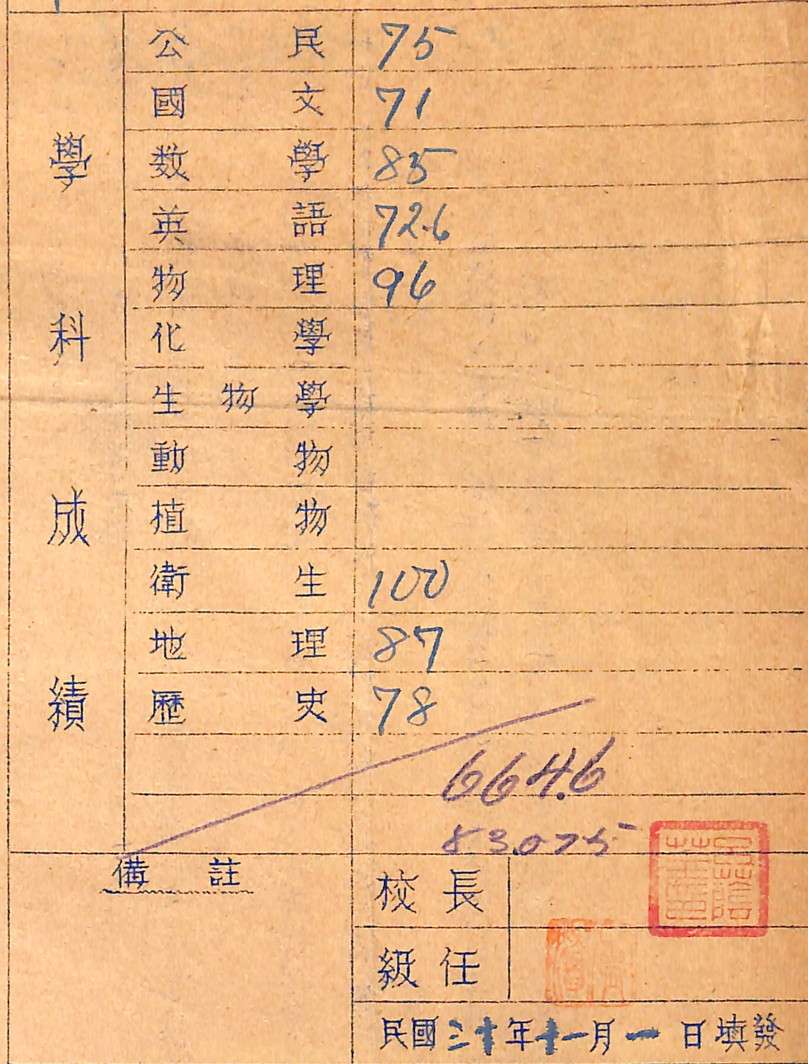 學科成績
公民 75
國文 71
数學 85
英語 72.6
物理 96
化學
生物學
動物
植物
衛生 100
地理 87
歷史 78
664.6
83.075
備註
校長
級任
民國三十年十一月一日填發